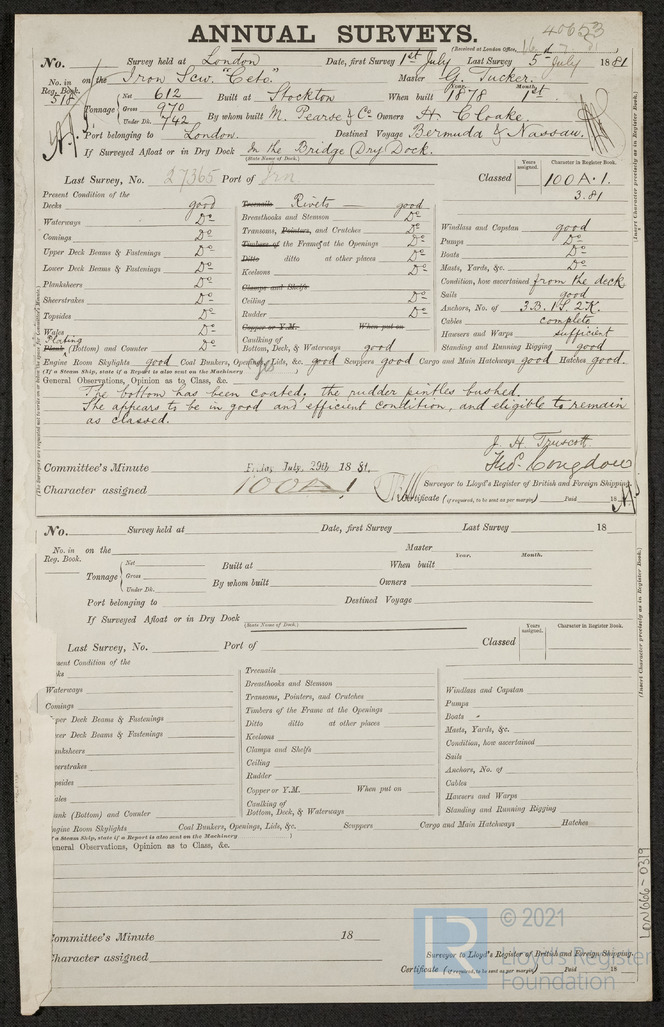 ANNUAL SURVEYS.
40653
(Received at London Office,
No. Survey held at London Date, first Survey 1st July Last Survey 5th July 1881
No. in Reg. Book. 518 on the Iron Scw. "Ceto" Master G. Tucker.
Tonnage Net 612 Built at Stockton When built Year. 1878 Month. 1st
Gross 970
Under Dk. 742 By whom built M. Pearse & Co Owners H. Cloake
Port belonging to London. Destined Voyage Bermuda & Nassau.
If Surveyed Afloat or in Dry Dock In the Bridge Dry Dock.
(State Name of Dock.)
Last Survey, No. 27365 Port of Irn
Classed Years assigned. Character in Register Book. 100A.1.
3.81
(Insert Character precisely as in Register Book.)
Present Condition of the
Decks good
Waterways Do
Comings Do
Upper Deck Beams & Fastenings Do
Lower Deck Beams & Fastenings Do
Planksheers Do
Sheerstrakes Do
Topsides Do
Wales Do
Plating
Plank (Bottom) and Counter Do
Treenails Rivets good
Breasthooks and Stemson Do
Transoms, Pointers, and Crutches Do
Timbers of the Frames at the Openings Do
Ditto ditto at other places Do
Keelsons Do
Clamps and Shelfs
Ceiling Do
Rudder Do
Copper or Y.M. When put on
Caulking of
Bottom, Deck, & Waterways good
Windlass and Capstan good
Pumps Do
Boats Do
Masts, Yards, &c. Do
Condition, how ascertained from the deck
Sails good
Anchors, No. of 3.B. 1S. 2K.
Cables complete
Hawsers and Warps sufficient
Standing and Running Rigging good
Engine Room Skylights good Coal Bunkers, Openings, Lids, &c. good Scuppers good Cargo and Main Hatchways good Hatches good.
(If a Steam Ship, state if a Report is also sent on the Machinery yes
General Observations, Opinion as to Class, &c.
The bottom has been coated, the rudder pintles bushed.
She appears to be in good and efficient condition, and eligible to remain
as classed.
J. H. Truscott
Thos. Congdon
Committee's Minute Friday July, 29th 1881.
Surveyor to Lloyd's Register of British and Foreign Shipping.
Character assigned 100A1
Certificate (if required, to be sent as per margin) Paid 18
No. Survey held at Date, first Survey Last Survey 18
No. in Reg. Book. on the Master
Tonnage Net Built at When built Year. Month.
Gross
Under Dk. By whom built Owners
Port belonging to Destined Voyage
If Surveyed Afloat or in Dry Dock
(State Name of Dock.)
Last Survey, No. Port of Classed Years assigned. Character in Register Book.
(Insert Character precisely as in Register Book.)
sent Condition of the
ks
Waterways
Comings
per Deck Beams & Fastenings
wer Deck Beams & Fastenings
nksheers
erstrakes
psides
ales
ank (Bottom) and Counter
Treenails
Breasthooks and Stemson
Transoms, Pointers, and Crutches
Timbers of the Frame at the Openings
Ditto ditto at other places
Keelsons
Clamps and Shelfs
Ceiling
Rudder
Copper or Y.M. When put on
Caulking of
Bottom, Deck, & Waterways
Windlass and Capstan
Pumps
Boats
Masts, Yards, &c.
Condition, how ascertained
Sails
Anchors, No. of
Cables
Hawsers and Warps
Standing and Running Rigging
ngine Room Skylights Coal Bunkers, Openings, Lids, &c. Scuppers Cargo and Main Hatchways Hatches
f a Steam Ship, state if a Report is also sent on the Machinery )
eneral Observations, Opinion as to Class, &c.
Committee's Minute 18
Surveyor to Lloyd's Register of British and Foreign Shipping.
Character assigned
Certificate (if required, to be sent as per margin) Paid 18
LON666-0319
LR
© 2021
Lloyd's Register
Foundation